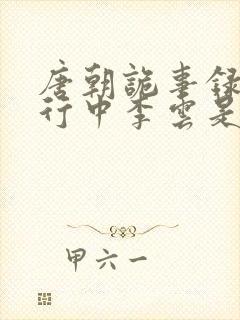 唐朝詭事録
行中李雲是
甲六一